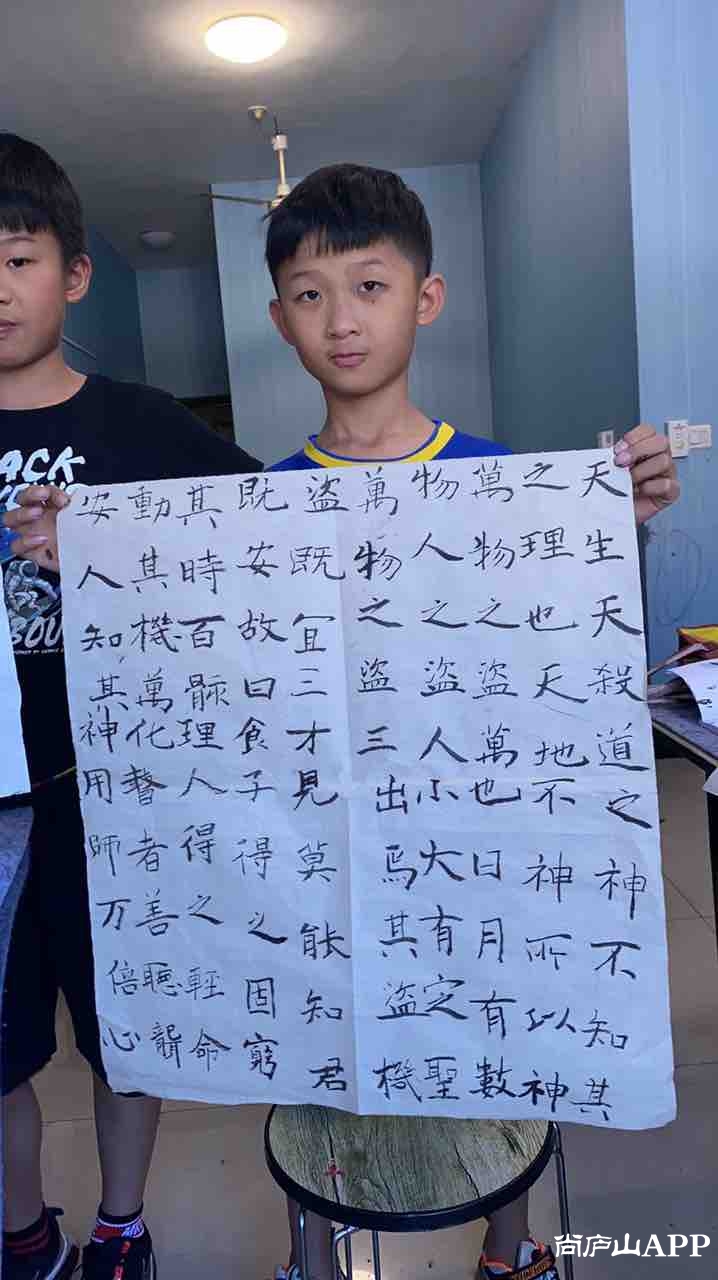 天生天殺道之神不知其
之理也天地不神所以神
萬物之盜萬也日月有數
物人之盜人小大有定聖
萬物之盜三出焉其盜機
盜既宜三才見莫能知君
既安故曰食子得之固窮
其時百骸理人得之輕命
動其機萬化瞽者善聽聾
安人知其神用師万倍心
ACK
OU
尚庐山APP